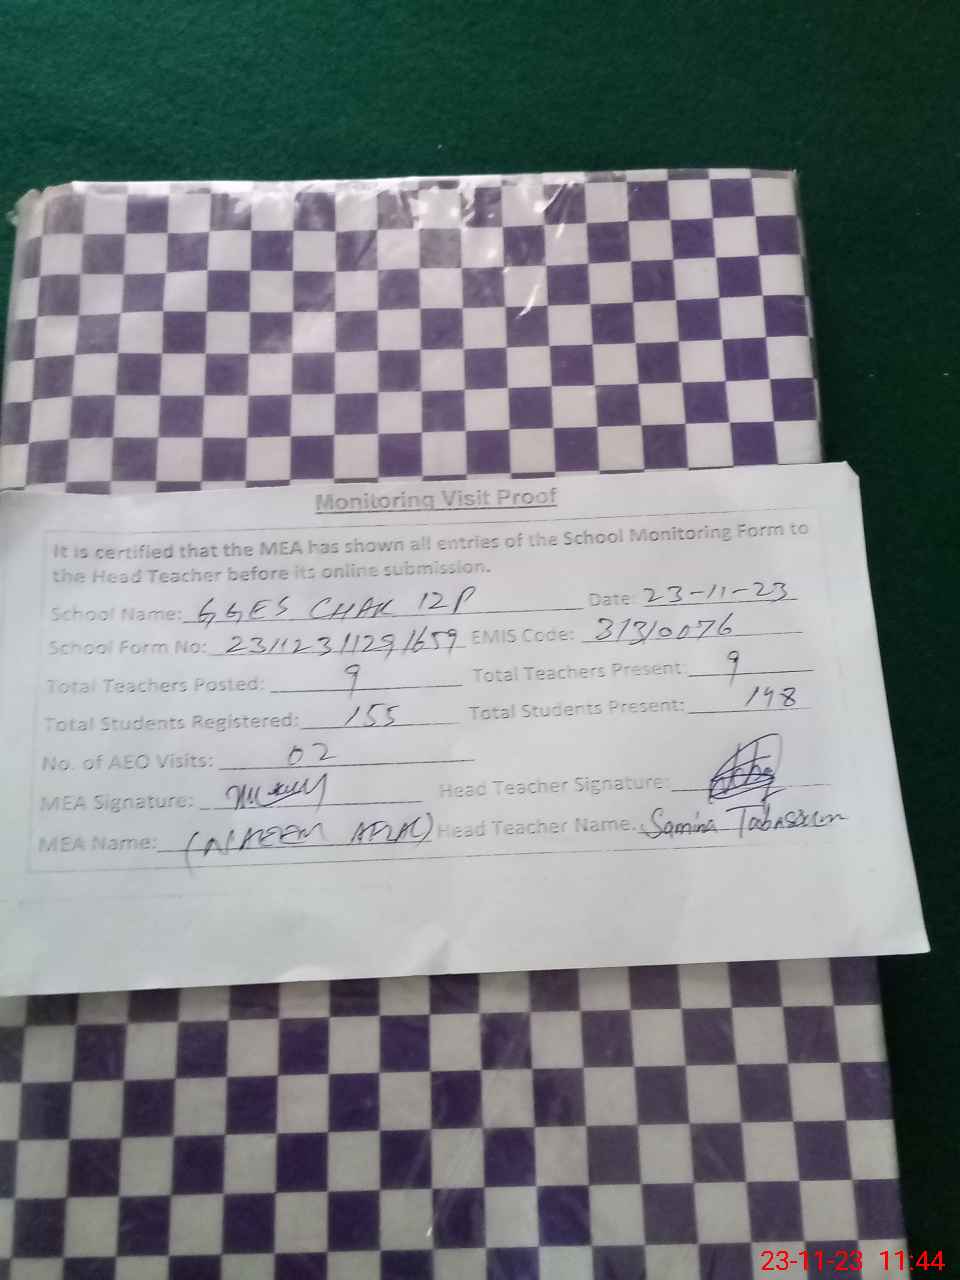 Monitoring Visit Proof
It is certified that the MEA has shown all entries of the School Monitoring Form to
the Head Teacher before its online submission.
School Name: GGES CHAK 12P Date: 23-11-23
School Form No: 23112311291659 EMIS Code: 31310076
Total Teachers Posted: 9 Total Teachers Present: 9
Total Students Registered: 155 Total Students Present: 148
No. of AEO Visits: 02
MEA Signature: Head Teacher Signature:
MEA Name: (NAEEM AFZAL) Head Teacher Name. Samina Tabassum
23-11-23 11:44